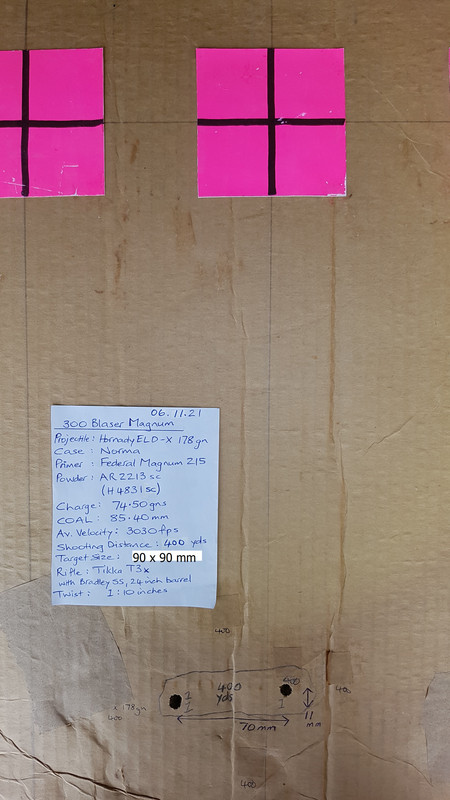 06.11.21
300 Blaser Magnum
Projectile: Hornady ELD-X 178gn
Case: Norma
Primer: Federal Magnum 215
Powder: AR2213sc
(H4831sc)
Charge: 74.50gns
COAL: 85.40mm
Av. Velocity: 3030fps
Shooting Distance: 400 yds
Target Size: 90 x 90 mm
Rifle: Tikka T3x
with Bradley SS, 24 inch barrel
Twist: 1:10 inches
400
400
400
yds
2
1
1
400
x 178gn
400
70mm
11
mm
400